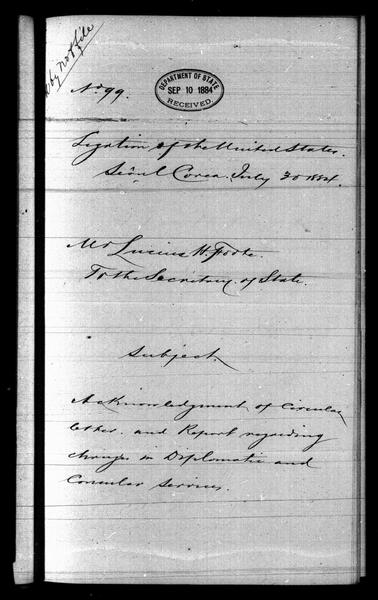 why not file
No 99.
DEPARTMENT OF STATE
SEP 10 1884
RECEIVED.
Legation of the United States.
Séoul Corea. July 30 1884.
Mr Lucius H. Foote.
To the Secretary of State.
Subject.
Acknowledgment of Circular
letter. and Report regarding
changes in Diplomatic and
Consular Services.